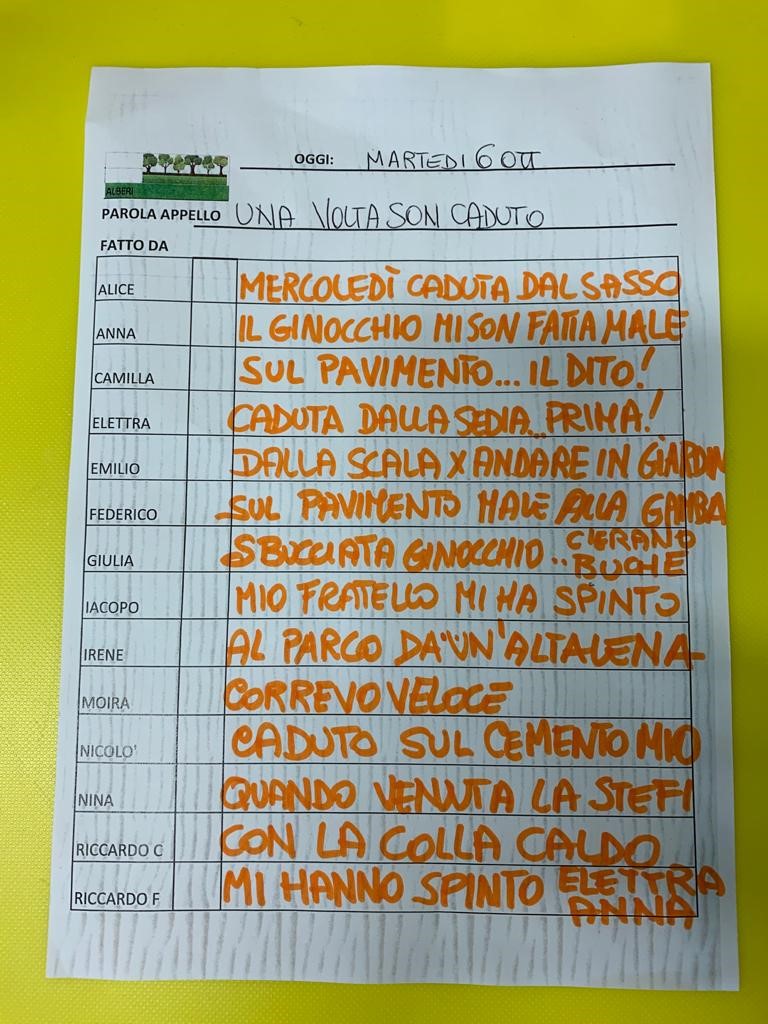 OGGI: MARTEDI 6 OTT
ALBERI
PAROLA APPELLO UNA VOLTA SON CADUTO
FATTO DA
ALICE MERCOLEDÌ CADUTA DAL SASSO
ANNA IL GINOCCHIO MI SON FATTA MALE
CAMILLA SUL PAVIMENTO... IL DITO!
ELETTRA CADUTA DALLA SEDIA... PRIMA!
EMILIO DALLA SCALA X ANDARE IN GIARDIN
FEDERICO SUL PAVIMENTO MALE ALLA GAMBA
GIULIA SBUCCIATA GINOCCHIO .. C'ERANO BUCHE
IACOPO MIO FRATELLO MI HA SPINTO
IRENE AL PARCO DA UN'ALTALENA
MOIRA CORREVO VELOCE
NICOLO' CADUTO SUL CEMENTO MIO
NINA QUANDO VENUTA LA STEFI
RICCARDO C CON LA COLLA CALDO
RICCARDO F MI HANNO SPINTO ELETTRA ANNA